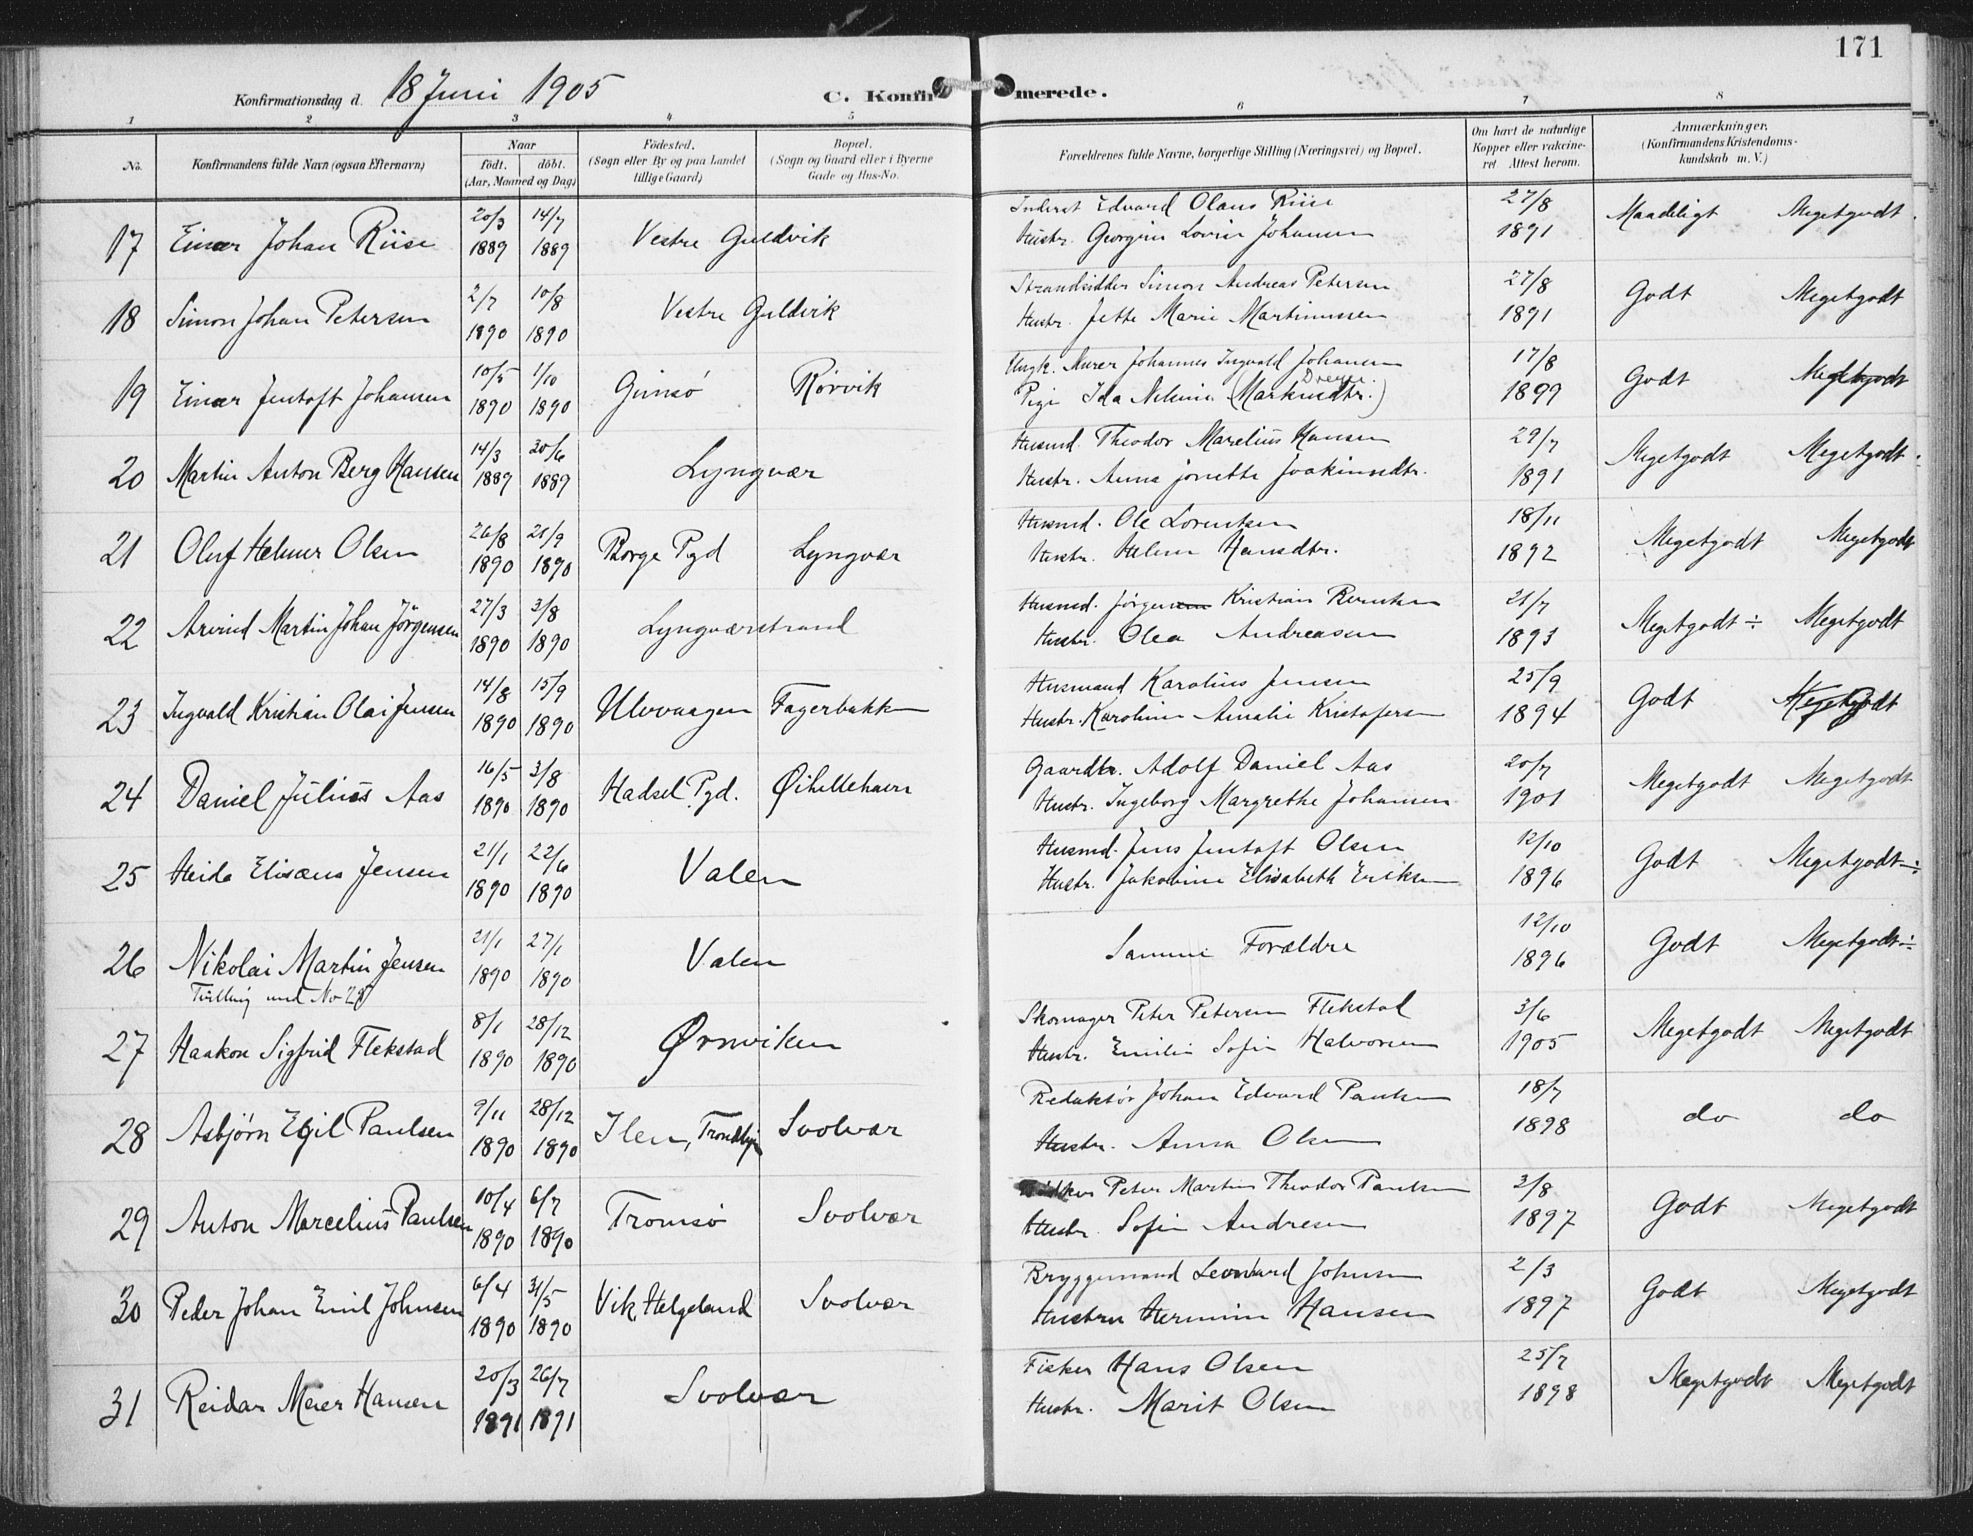 171
Konfirmationsdag d. 18 Juni 1905 C. Konfirmerede.
1 2 3 4 5 6 7 8
No. Konfirmandens fulde Navn (ogsaa Efternavn) Naar födt. döbt. (Aar, Maaned og Dag) Födested. (Sogn eller By og paa Landet tillige Gaard) Bopæl. (Sogn og Gaard eller i Byerne Gade og Hus-No. Forældrenes fulde Navne, borgerlige Stilling (Næringsvei) og Bopæl. Om havt de naturlige Kopper eller vakcineret Attest herom. Anmærkninger. (Konfirmandens Kristendomskundskab m. V.)
20/3 14/7 Inderst Edvard Olaus Riise 27/8
17 Einar Johan Riise 1889 1889 Vestre Guldvik Hustr. Georgine Lovise Johansen 1891 Maadeligt Megetgodt.
2/7 10/8 Strandsidder Simon Andreas Petersen 27/8
18 Simon Johan Petersen 1890 1890 Vestre Guldvik Hustr. Jette Marie Martinussen 1891 Godt Megetgodt
10/5 1/10 Ungk. Murer Johannes Ingvald Johansen 17/8
19 Einar Jentoft Johansen 1890 1890 Gimsö Rørvik Pige Ida Nikoline (Markusdtr.) Dreyer. 1899 Godt Megetgodt
14/3 30/6 Husmd. Theodor Marelius Hansen 29/7
20 Martin Anton Berg Hansen 1889 1889 Lyngvær Hustr. Anna Jonette Joakimsdtr. 1891 Megetgodt Megetgodt
26/8 21/9 Husmd. Ole Lorentsen 18/11
21 Oluf Helmer Olsen 1890 1890 Borge Pgd Lyngvær Hustr. Helene Hansdtr. 1892 Megetgodt Megetgodt
27/3 3/8 Husmd. Jörgen Kristian Berntsen 21/7
22 Arvind Martin Johan Jörgensen 1890 1890 Lyngværstrand Hustr. Olea Andreasen 1893 Megetgodt ÷ Megetgodt
14/8 15/9 Husmand Karolius Jensen 25/9
23 Ingvald Kristian Olai Jensen 1890 1890 Ulvvaagen Fagerbakken Hustr. Karoline Amalie Kristofersen 1894 Godt Megetgodt
16/5 3/8 Gaardbr. Adolf Daniel Aas 20/7
24 Daniel Julius Aas 1890 1890 Hadsel Pgd. Øihellehavn Hustr. Ingeborg Margrethe Johansen 1901 Megetgodt Megetgodt
21/1 22/6 Husmd. Jens Jentoft Olsen 12/10
25 Elisæus Jensen 1890 1890 Valen Hustr. Jakobine Elisabeth Eriksen 1896 Godt Megetgodt ÷
21/1 27/1 12/10
26 Nikolai Martin Jensen 1890 1890 Valen Samme Forældre 1896 Godt Megetgodt ÷
Tvilling med No
8/1 28/12 Skomager Peter Petersen Flekstad 3/6
27 Haakon Sigfrid Flekstad 1890 1890 Ørsviken Hustr. Emilie Sofie Halvorsen 1905 Megetgodt Megetgodt
9/11 28/12 Redaktör Johan Edvard Paulsen 18/7
28 Asbjørn Egil Paulsen 1890 1890 Ilen, Trondhj. Svolvær Hustr. Anna Olsen 1898 do do
10/4 6/7 Peter Martin Theodor Paulsen 3/8
29 Anton Marcelius Paulsen 1890 1890 Tromsö Svolvær Hustr. Sofie Andresen 1897 Godt Megetgodt
6/4 31/5 Bryggemand Leonhard Johnsen 2/3
30 Peder Johan Emil Johnsen 1890 1890 Vik, Helgeland Svolvær Hustru Hermine Hansen 1897 Godt Megetgodt
20/3 26/7 Fisker Hans Olsen 25/7
31 Reidar Meier Hansen 1891 1891 Svolvær Hustr. Marit Olsen 1898 Megetgodt Megetgodt